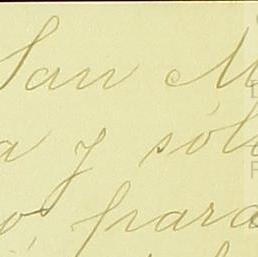 San M
a y sólo
o, para